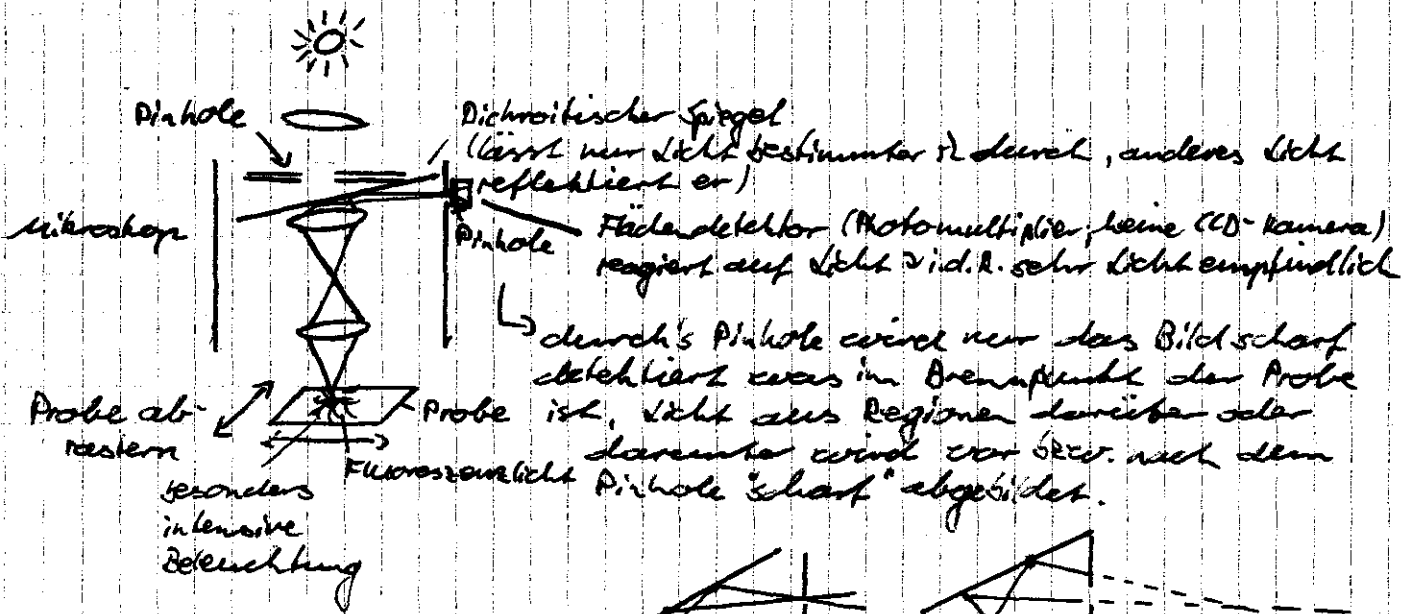 Pinhole
Dichroitischer Spiegel
(lässt nur Licht bestimmter λ durch, anderes Licht
reflektiert er)
Mikroskop
Pinhole
Flächendetektor (Photomultiplier, keine CCD-Kamera)
reagiert auf Licht i.d.R. sehr lichtempfindlich
durch's Pinhole wird nur das Bild scharf
detektiert was im Brennpunkt der Probe
ist, Licht aus Regionen darüber oder
darunter wird vor bzw. nach dem
Pinhole "scharf" abgebildet.
Probe ab-
rastern
Probe
Fluoreszenzlicht
besonders
intensive
Beleuchtung